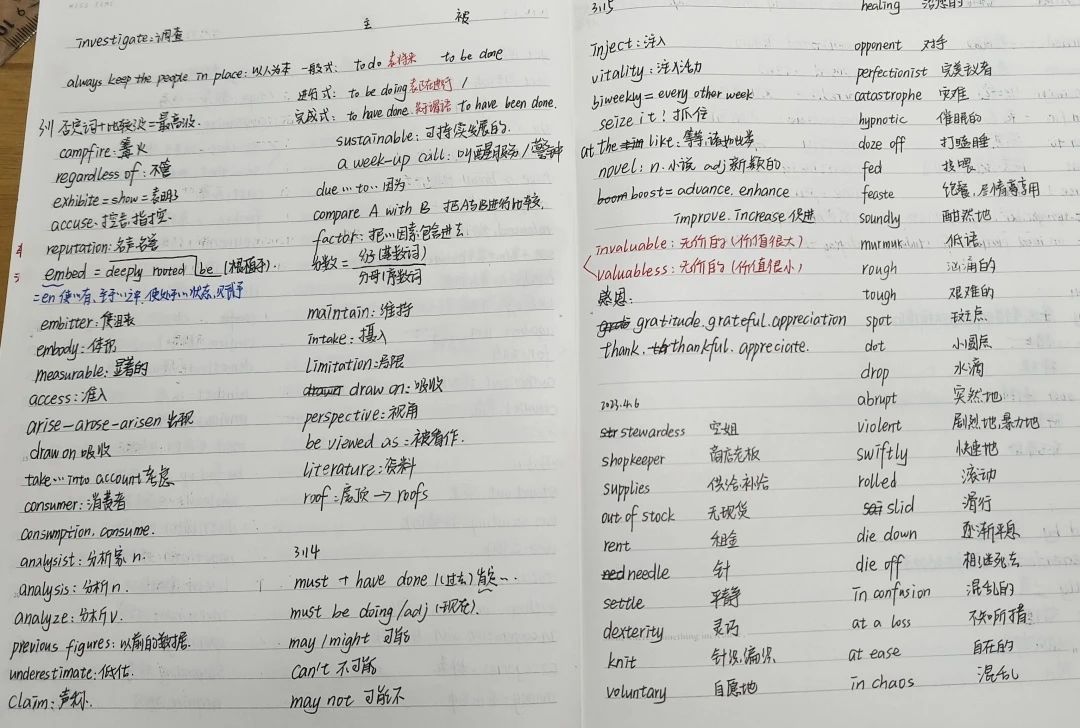 主 被
investigate:调查
always keep the people in place:以人为本 一般式: to do 表将来 to be done
进行式: to be doing 表正在进行 /
完成式: to have done 先于谓语 to have been done.
3.11 否定词+比较级=最高级.
campfire:篝火
regardless of:不管
exhibite=show=表明
accuse:控告.指控.
reputation:名声.名誉
embed = deeply rooted be (根植于).
embitter:使沮丧
embody:体现
measurable:显著的
access:准入
arise-arose-arisen 出现
draw on 吸收
take…into account 考虑
consumer:消费者
consumption. consume.
analysist:分析家 n.
analysis:分析 n.
analyze:分析 v.
previous figures:以前的数据.
underestimate:低估.
claim:声称.
sustainable:可持续发展的.
a week-up call:叫醒服务/警钟
due…to…因为
compare A with B 把A与B进行比较.
factor:把…因素包含进去.
分数= 分子(基数词)
分母(序数词)
maintain:维持
intake:摄入
limitation:局限
draw on:吸收
perspective:视角
be viewed as:被看作.
literature:资料
roof:屋顶→roofs
3.14
must + have done (过去)肯定…
must be doing/adj (现在).
may/might 可能
can't 不可能
may not 可能不
3.15
inject:注入
vitality:注入活力
biweekly=every other week
seize it!抓住
at the like:等等.诸如此类
novel:n.小说 adj新颖的
boost=advance. enhance
improve. increase 促进
invaluable:无价的(价值很大)
valuabless:无价的(价值很小)
感恩:
gratitude. grateful. appreciation
thank. thankful. appreciate.
2023.4.6
stewardess 空姐
shopkeeper 商店老板
supplies 供给.补给
out of stock 无现货
rent 租金
needle 针
settle 平静
dexterity 灵巧
knit 针织.编织
voluntary 自愿地
healing 治愈的
opponent 对手
perfectionist 完美主义者
catastrophe 灾难
hypnotic 催眠的
doze off 打瞌睡
fed 投喂
feaste 饱餐.尽情享用
soundly 酣然地
murmuk 低语
rough 汹涌的
tough 艰难的
spot 斑点
dot 小圆点
drop 水滴
abrupt 突然地
violent 剧烈地.暴力地
swiftly 快速地
rolled 滚动
slid 滑行
die down 逐渐平息
die off 相继死去
in confusion 混乱的
at a loss 不知所措
at ease 自在的
in chaos 混乱